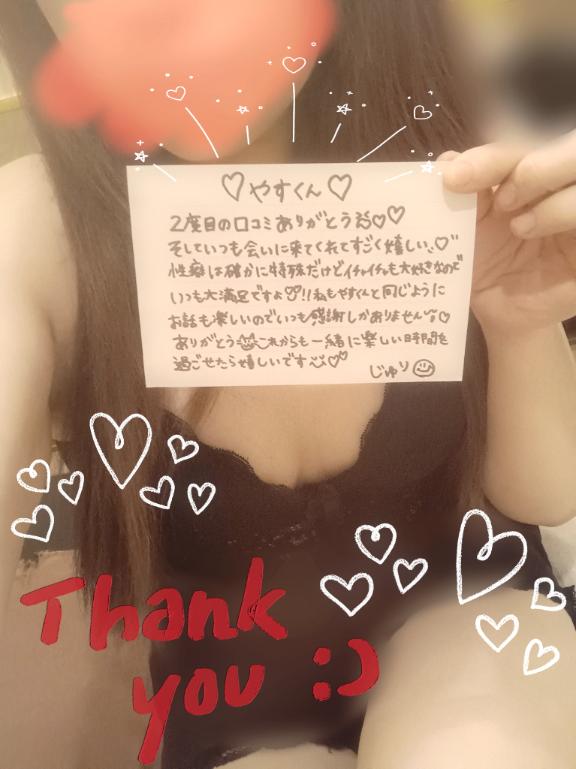 ♡やすくん♡
2度目の口コミありがとう♡♡
そしていつも会いに来てくれてすごく嬉しい♡
性癖は確かに特殊だけどイチャイチャも大好きなので
いつも大満足ですよ♡!!私もやすくんと同じように
お話も楽しいのでいつも感謝しかありません♡
ありがとう これからも一緒に楽しい時間を
過ごせたら嬉しいです♡♡
じゅり
Thank
you :)